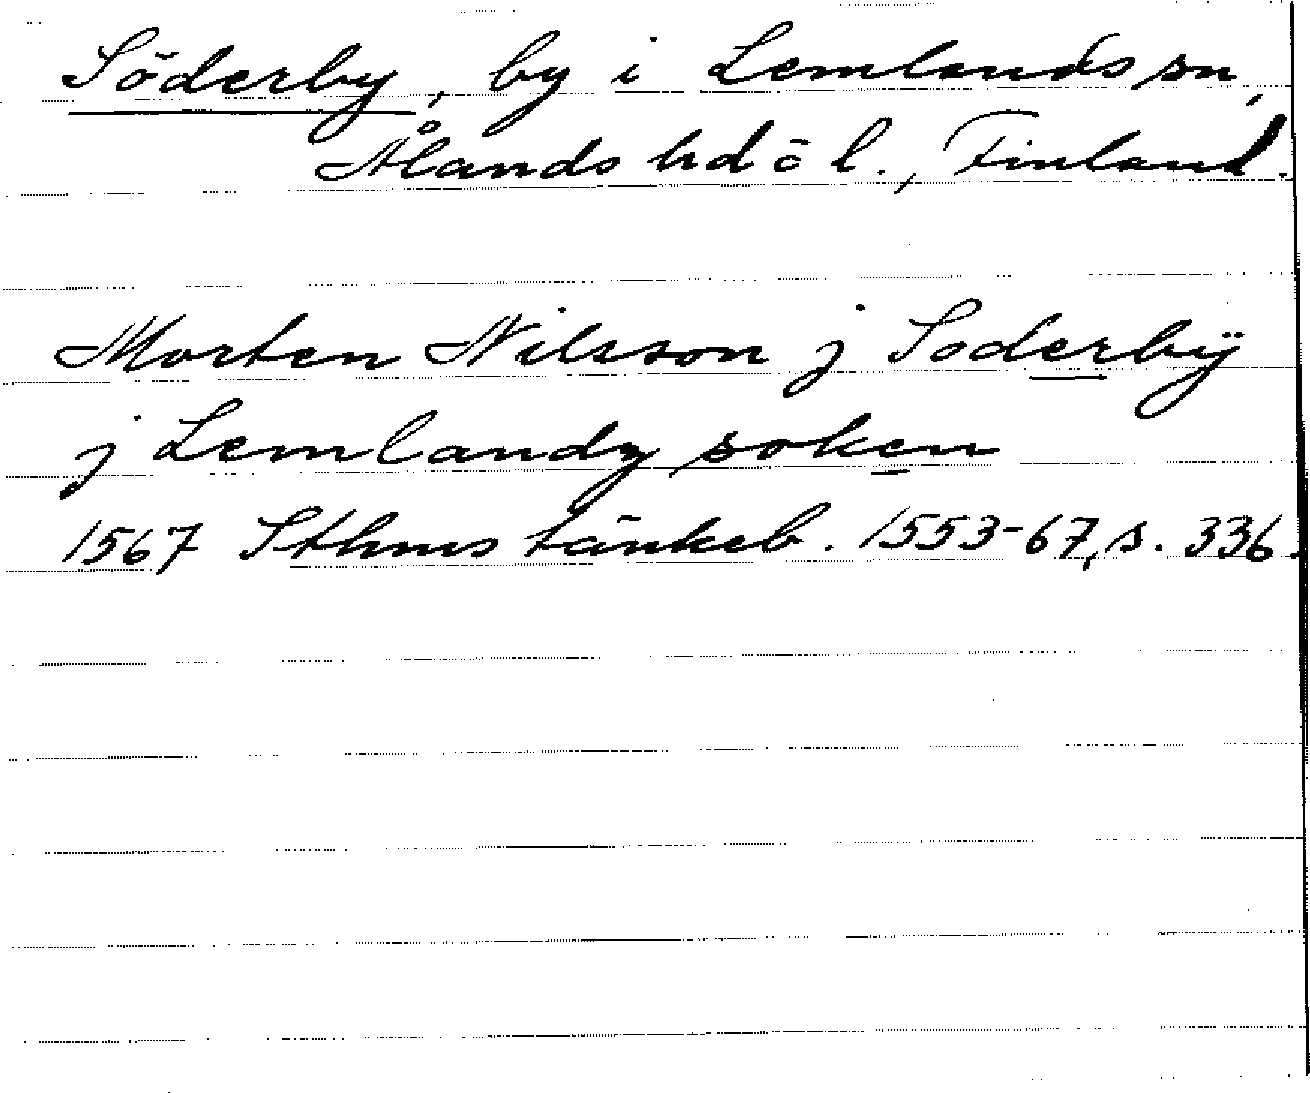 Söderby, by i Lemlands sn,
Ålands hd o l., Finland.
Morten Nilsson j Soderbÿ
j Lemlandz soken
1567 Sthms tänkeb. 1553-67, s. 336.